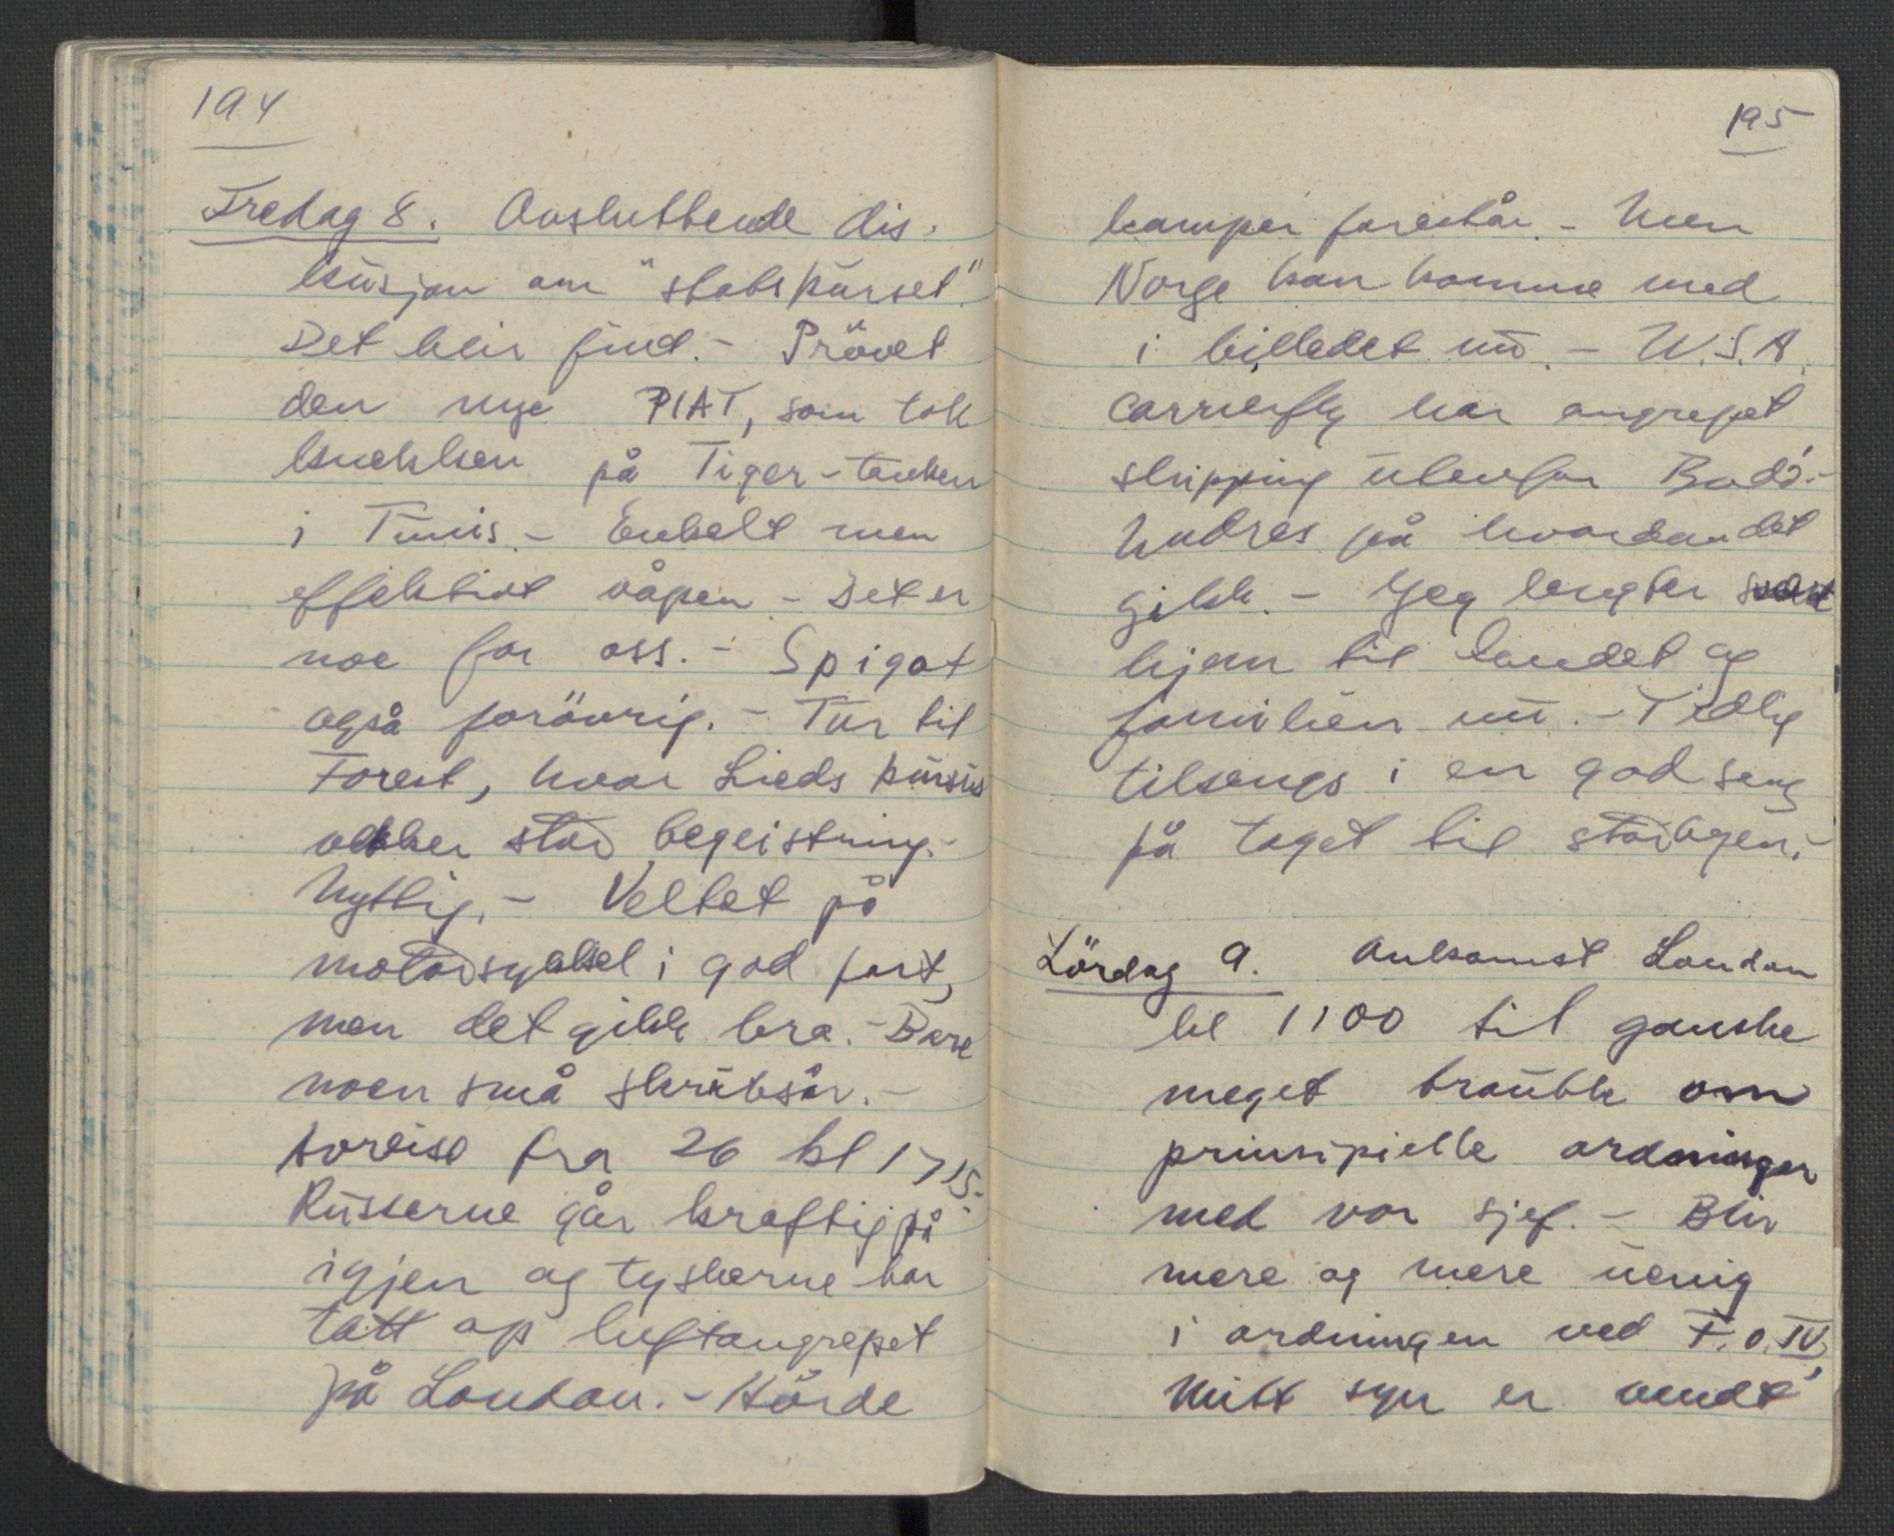 194
Fredag 8. Avsluttende dis-
kusjon om "stabskurset".
Det blir fint. - Prövet
den nye PIAT, som tok
knekken på Tiger-tanken
i Tunis. - Enkelt men
effektivt våpen - Det er
noe for oss. - Spigot
også forövrig. - Tur til
Forest, hvor Lieds kursus
vekker stor begeistring. -
Nyttig. - Veltet på
motorsykkel i god fart,
men det gikk bra. - Bare
noen små skrubsår. -
Avreise fra 26 kl 1715. -
Russerne går kraftig på
igjen og tyskerne har
tatt op luftangrepet
på London. - Hörde
195
kamper forestår. - Men
Norge kan komme med
i billedet nu. - U.S.A.
carrierfly har angrepet
shipping utenfor Bodö. -
Undres på hvordan det
gikk. - Jeg lengter svært
hjem til landet og
familien nu. - Tidlig
tilsengs i en god seng
på toget til storbyen. -
Lördag 9. Ankomst London
kl 1100 til ganske
meget trouble om
prinsipielle ordninger
med vor sjef. - Blir
mere og mere uenig
i ordningen ved F.O.IV,
Mitt syn er vendt